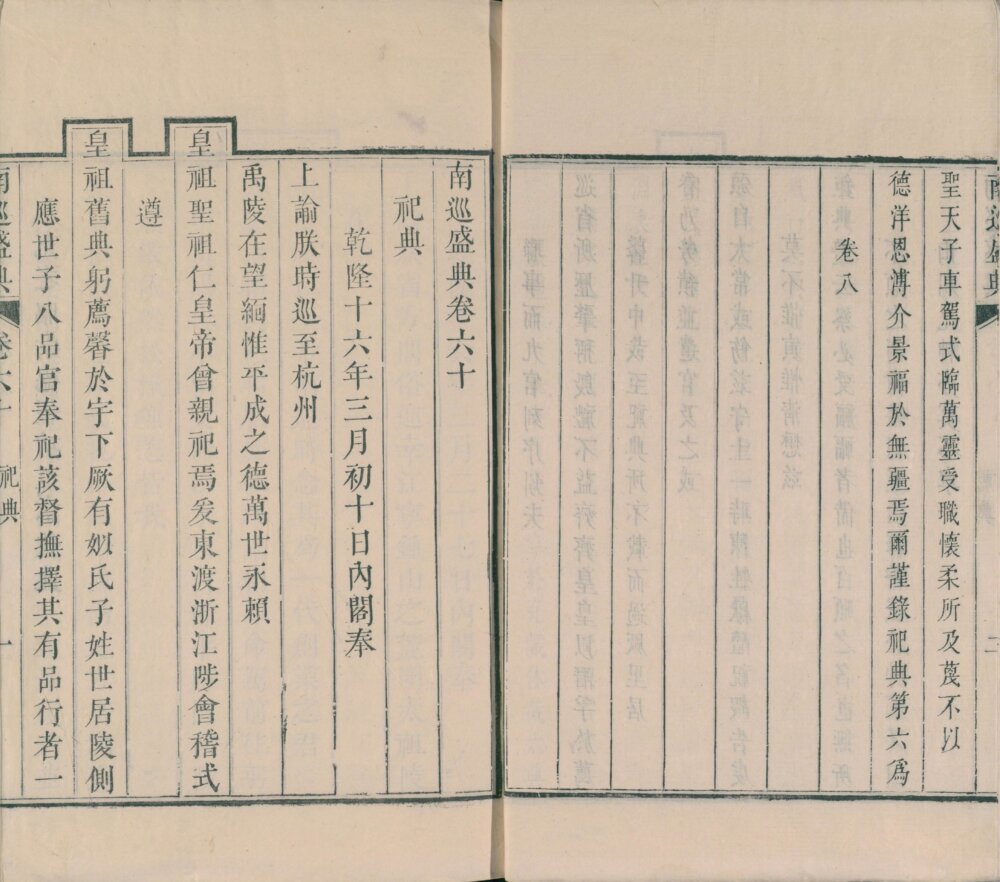 南巡盛典
二
聖天子車駕式臨萬靈受職懷柔所及蔑不以
德洋恩溥介景福於無疆焉爾謹錄祀典第六爲
卷八
南巡盛典卷六十
祀典
乾隆十六年三月初十日內閣奉
上諭朕時巡至杭州
禹陵在望緬惟平成之德萬世永賴
皇祖聖祖仁皇帝曾親祀焉爰東渡浙江陟會稽式
遵
皇祖舊典躬薦馨於宇下厥有姒氏子姓世居陵側
應世予八品官奉祀該督撫擇其有品行者一
南巡盛典
卷六十
祀典
一